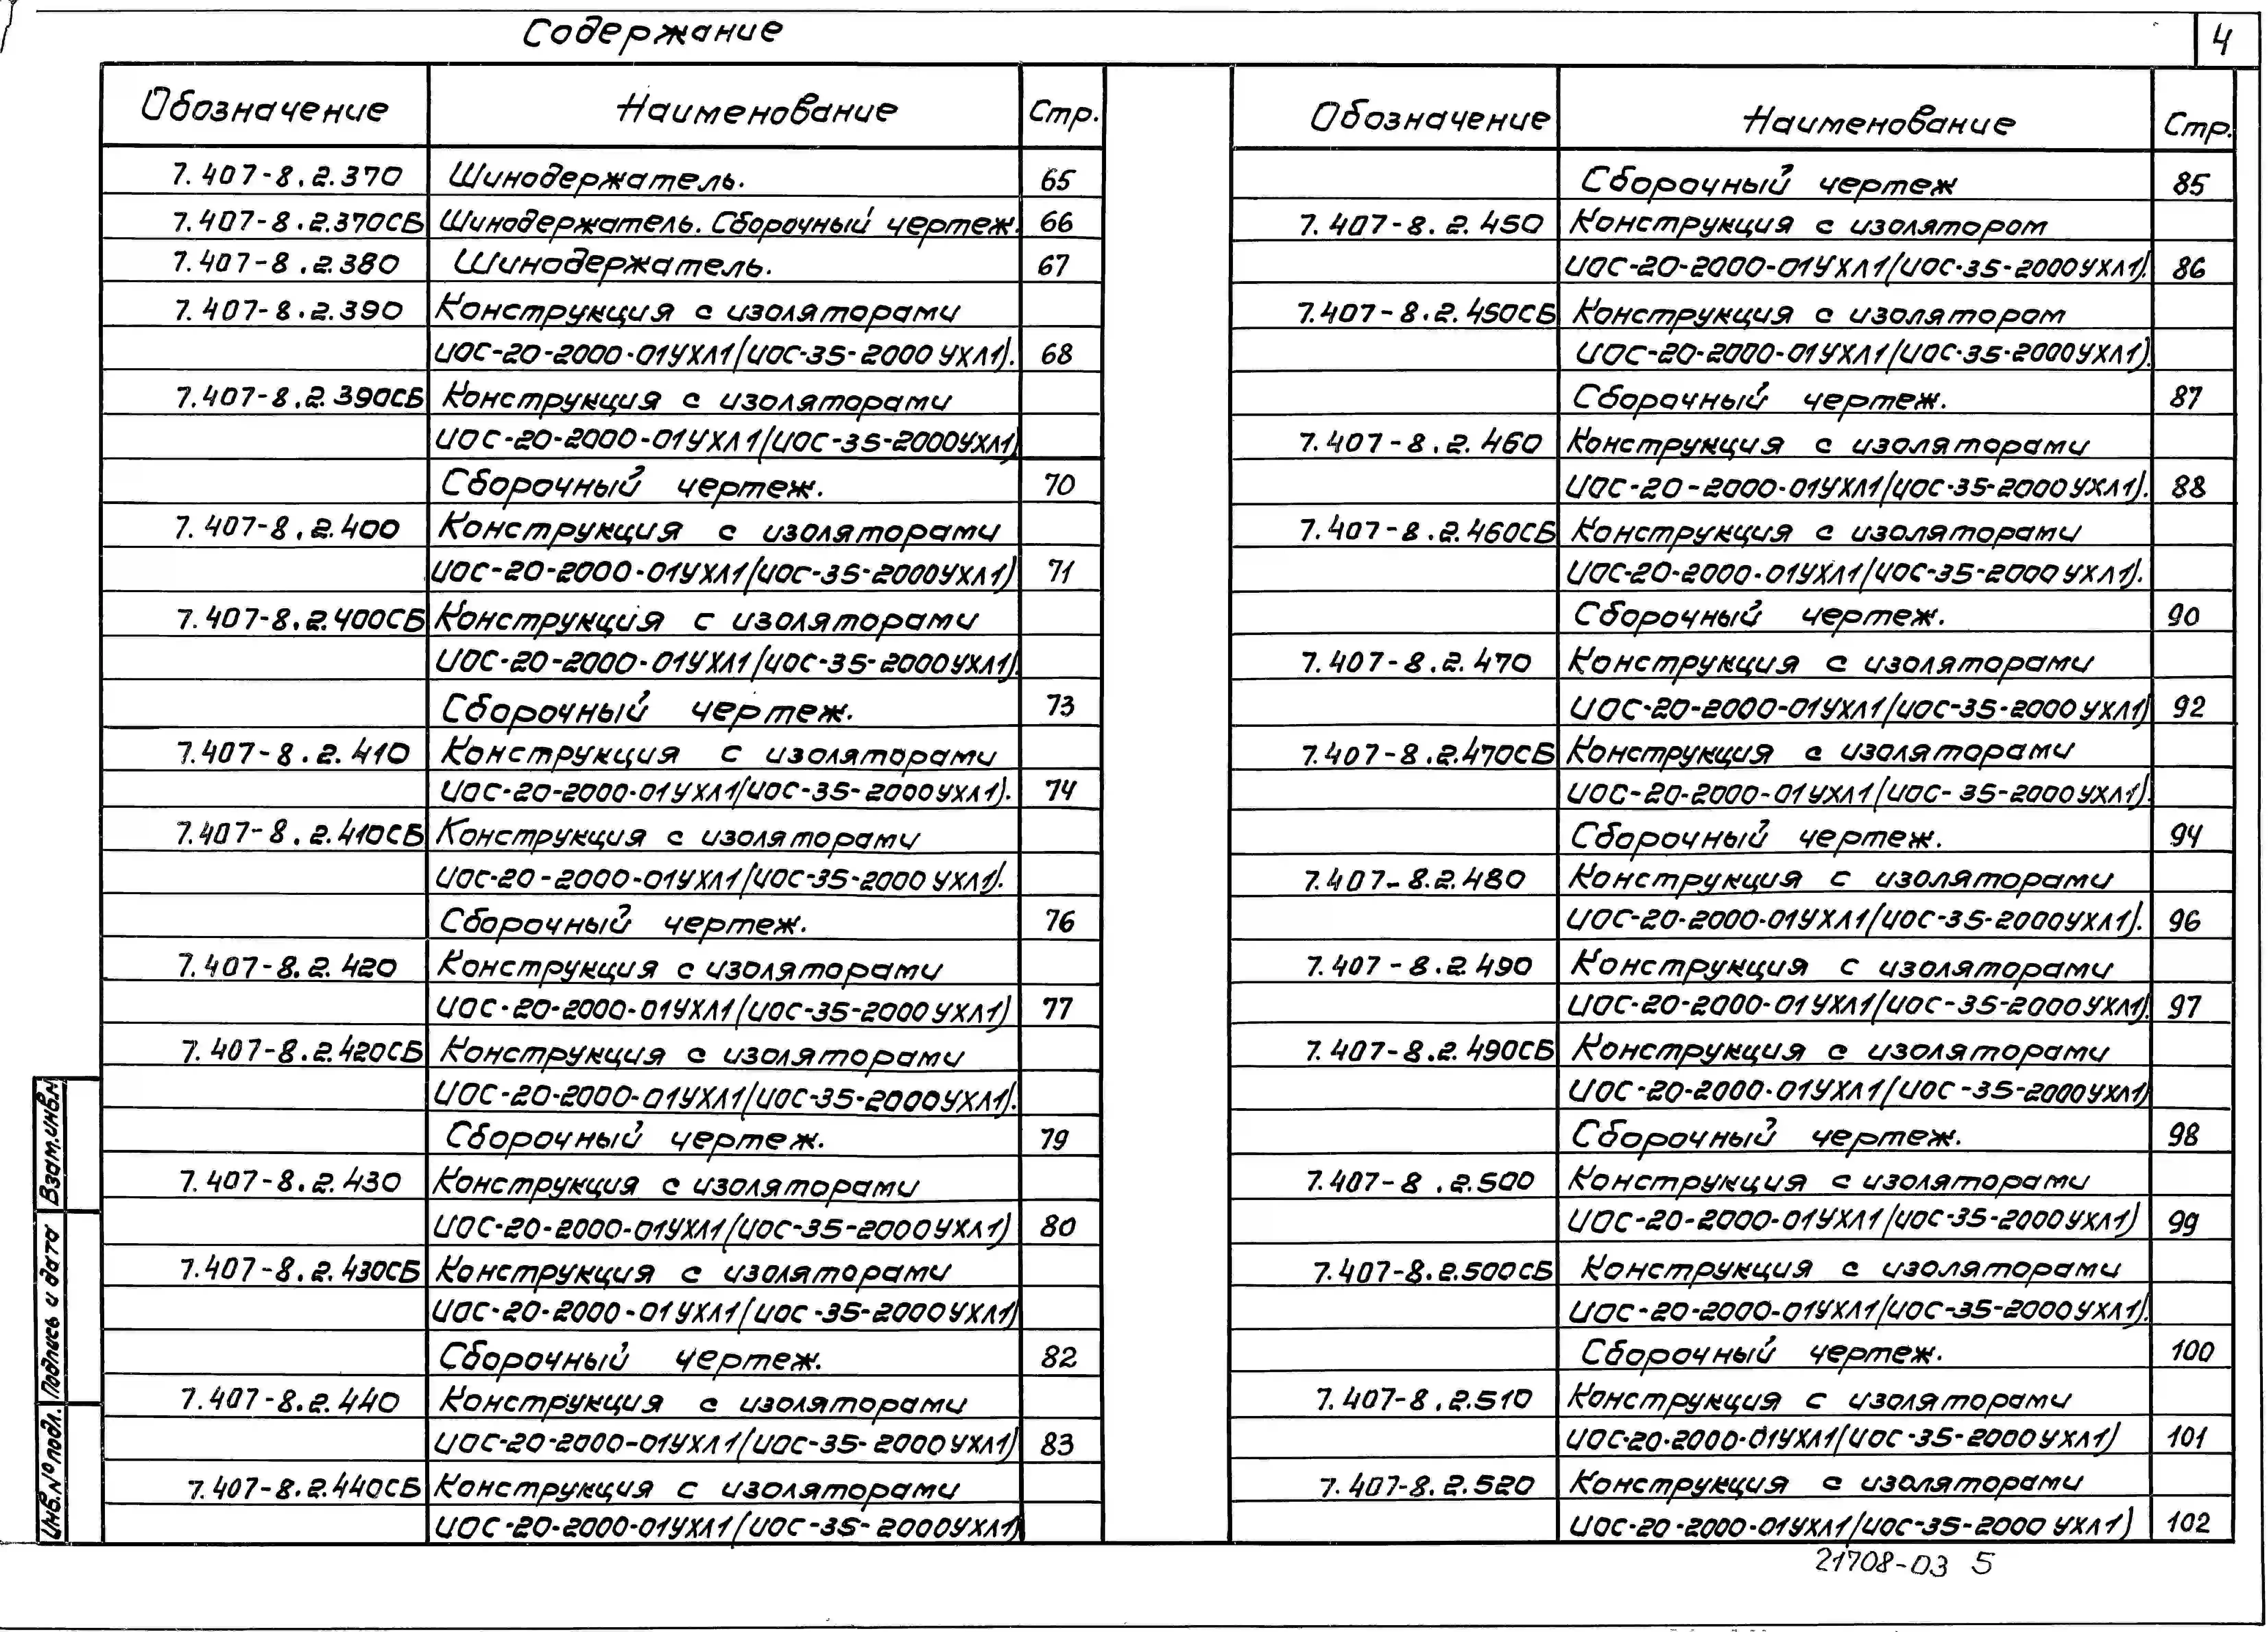 Содержание
4
Обозначение Наименование Стр.
7.407-8.2.370 Шинодержатель. 65
7.407-8.2.370СБ Шинодержатель. Сборочный чертеж. 66
7.407-8.2.380 Шинодержатель. 67
7.407-8.2.390 Конструкция с изоляторами
ИОС-20-2000-01УХЛ1/ИОС-35-2000УХЛ1). 68
7.407-8.2.390СБ Конструкция с изоляторами
ИОС-20-2000-01УХЛ1/(ИОС-35-2000УХЛ1)
Сборочный чертеж. 70
7.407-8.2.400 Конструкция с изоляторами
ИОС-20-2000-01УХЛ1/(ИОС-35-2000УХЛ1) 71
7.407-8.2.400СБ Конструкция с изоляторами
ИОС-20-2000-01УХЛ1/(ИОС-35-2000УХЛ1).
Сборочный чертеж. 73
7.407-8.2.410 Конструкция с изоляторами
ИОС-20-2000-01УХЛ1(ИОС-35-2000УХЛ1). 74
7.407-8.2.410СБ Конструкция с изоляторами
ИОС-20-2000-01УХЛ1(ИОС-35-2000УХЛ1).
Сборочный чертеж. 76
7.407-8.2.420 Конструкция с изоляторами
ИОС-20-2000-01УХЛ1(ИОС-35-2000УХЛ1) 77
7.407-8.2.420СБ Конструкция с изоляторами
ИОС-20-2000-01УХЛ1(ИОС-35-2000УХЛ1).
Сборочный чертеж. 79
7.407-8.2.430 Конструкция с изоляторами
ИОС-20-2000-01УХЛ1(ИОС-35-2000УХЛ1) 80
7.407-8.2.430СБ Конструкция с изоляторами
ИОС-20-2000-01УХЛ1(ИОС-35-2000УХЛ1)
Сборочный чертеж. 82
7.407-8.2.440 Конструкция с изоляторами
ИОС-20-2000-01УХЛ1(ИОС-35-2000УХЛ1) 83
7.407-8.2.440СБ Конструкция с изоляторами
ИОС-20-2000-01УХЛ1(ИОС-35-2000УХЛ1)
Обозначение Наименование Стр.
Сборочный чертеж 85
7.407-8.2.450 Конструкция с изолятором
ИОС-20-2000-01УХЛ1(ИОС-35-2000УХЛ1). 86
7.407-8.2.450СБ Конструкция с изолятором
ИОС-20-2000-01УХЛ1(ИОС-35-2000УХЛ1).
Сборочный чертеж. 87
7.407-8.2.460 Конструкция с изоляторами
ИОС-20-2000-01УХЛ1(ИОС-35-2000УХЛ1). 88
7.407-8.2.460СБ Конструкция с изоляторами
ИОС-20-2000-01УХЛ1(ИОС-35-2000УХЛ1).
Сборочный чертеж. 90
7.407-8.2.470 Конструкция с изоляторами
ИОС-20-2000-01УХЛ1(ИОС-35-2000УХЛ1) 92
7.407-8.2.470СБ Конструкция с изоляторами
ИОС-20-2000-01УХЛ1(ИОС-35-2000УХЛ1).
Сборочный чертеж. 94
7.407-8.2.480 Конструкция с изоляторами
ИОС-20-2000-01УХЛ1(ИОС-35-2000УХЛ1). 96
7.407-8.2.490 Конструкция с изоляторами
ИОС-20-2000-01УХЛ1(ИОС-35-2000УХЛ1). 97
7.407-8.2.490СБ Конструкция с изоляторами
ИОС-20-2000-01УХЛ1(ИОС-35-2000УХЛ1)
Сборочный чертеж. 98
7.407-8.2.500 Конструкция с изоляторами
ИОС-20-2000-01УХЛ1(ИОС-35-2000УХЛ1) 99
7.407-8.2.500СБ Конструкция с изоляторами
ИОС-20-2000-01УХЛ1(ИОС-35-2000УХЛ1).
Сборочный чертеж. 100
7.407-8.2.510 Конструкция с изоляторами
ИОС-20-2000-01УХЛ1(ИОС-35-2000УХЛ1) 101
7.407-8.2.520 Конструкция с изоляторами
ИОС-20-2000-01УХЛ1(ИОС-35-2000УХЛ1) 102
Взам.инв.N
Подпись и дата
Инв.№подл.
21708-03 5